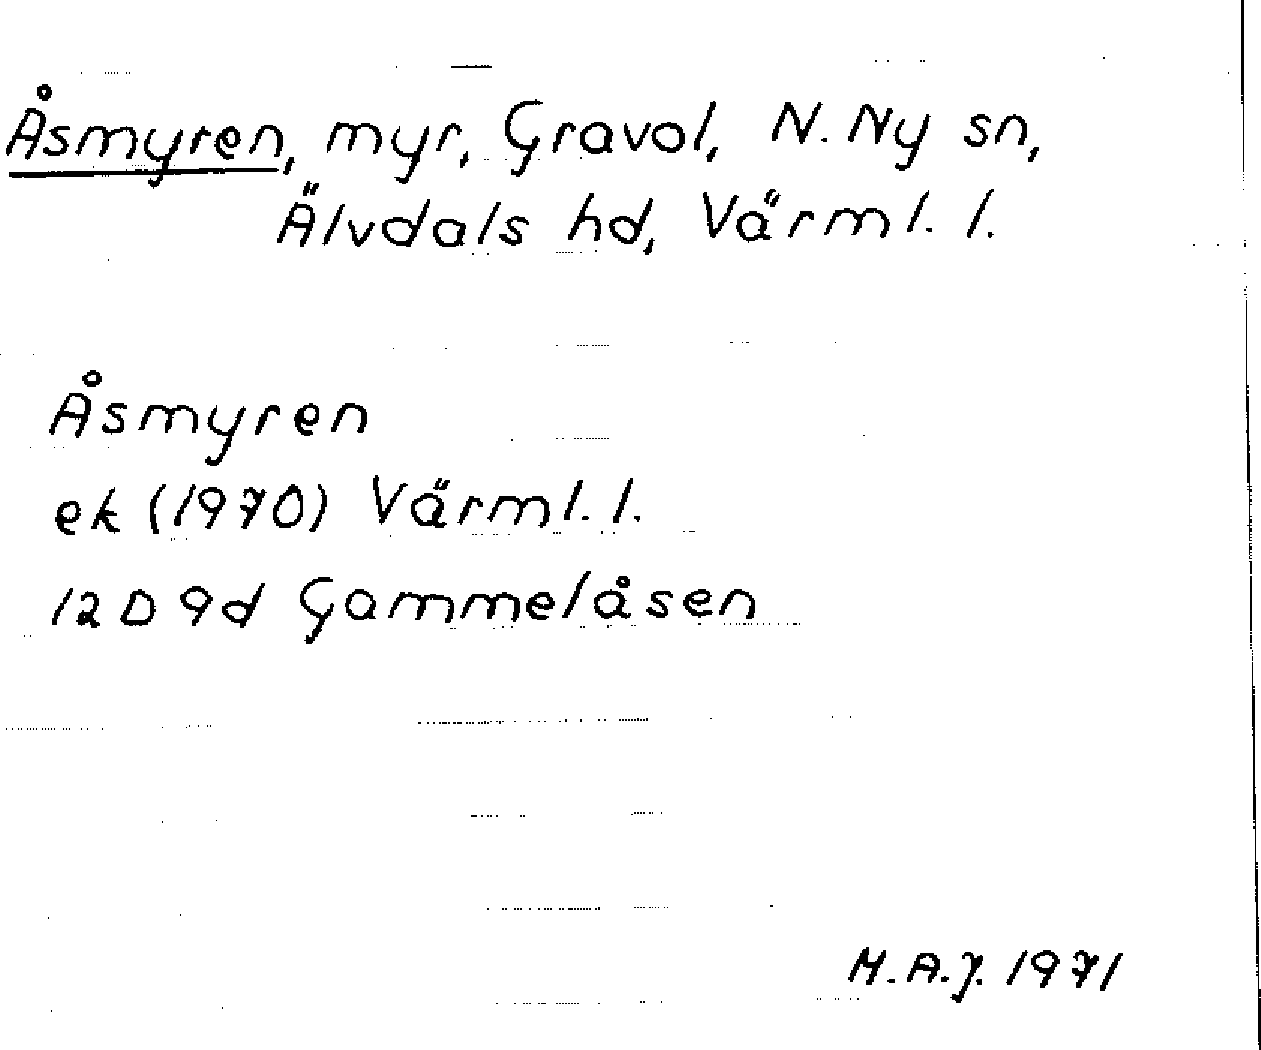 Åsmyren, myr, Gravol, N. Ny sn,
Älvdals hd, Värml. l.
Åsmyren
ek (1970) Värml. l.
12 D 9d Gammelåsen
M.A.J. 1971